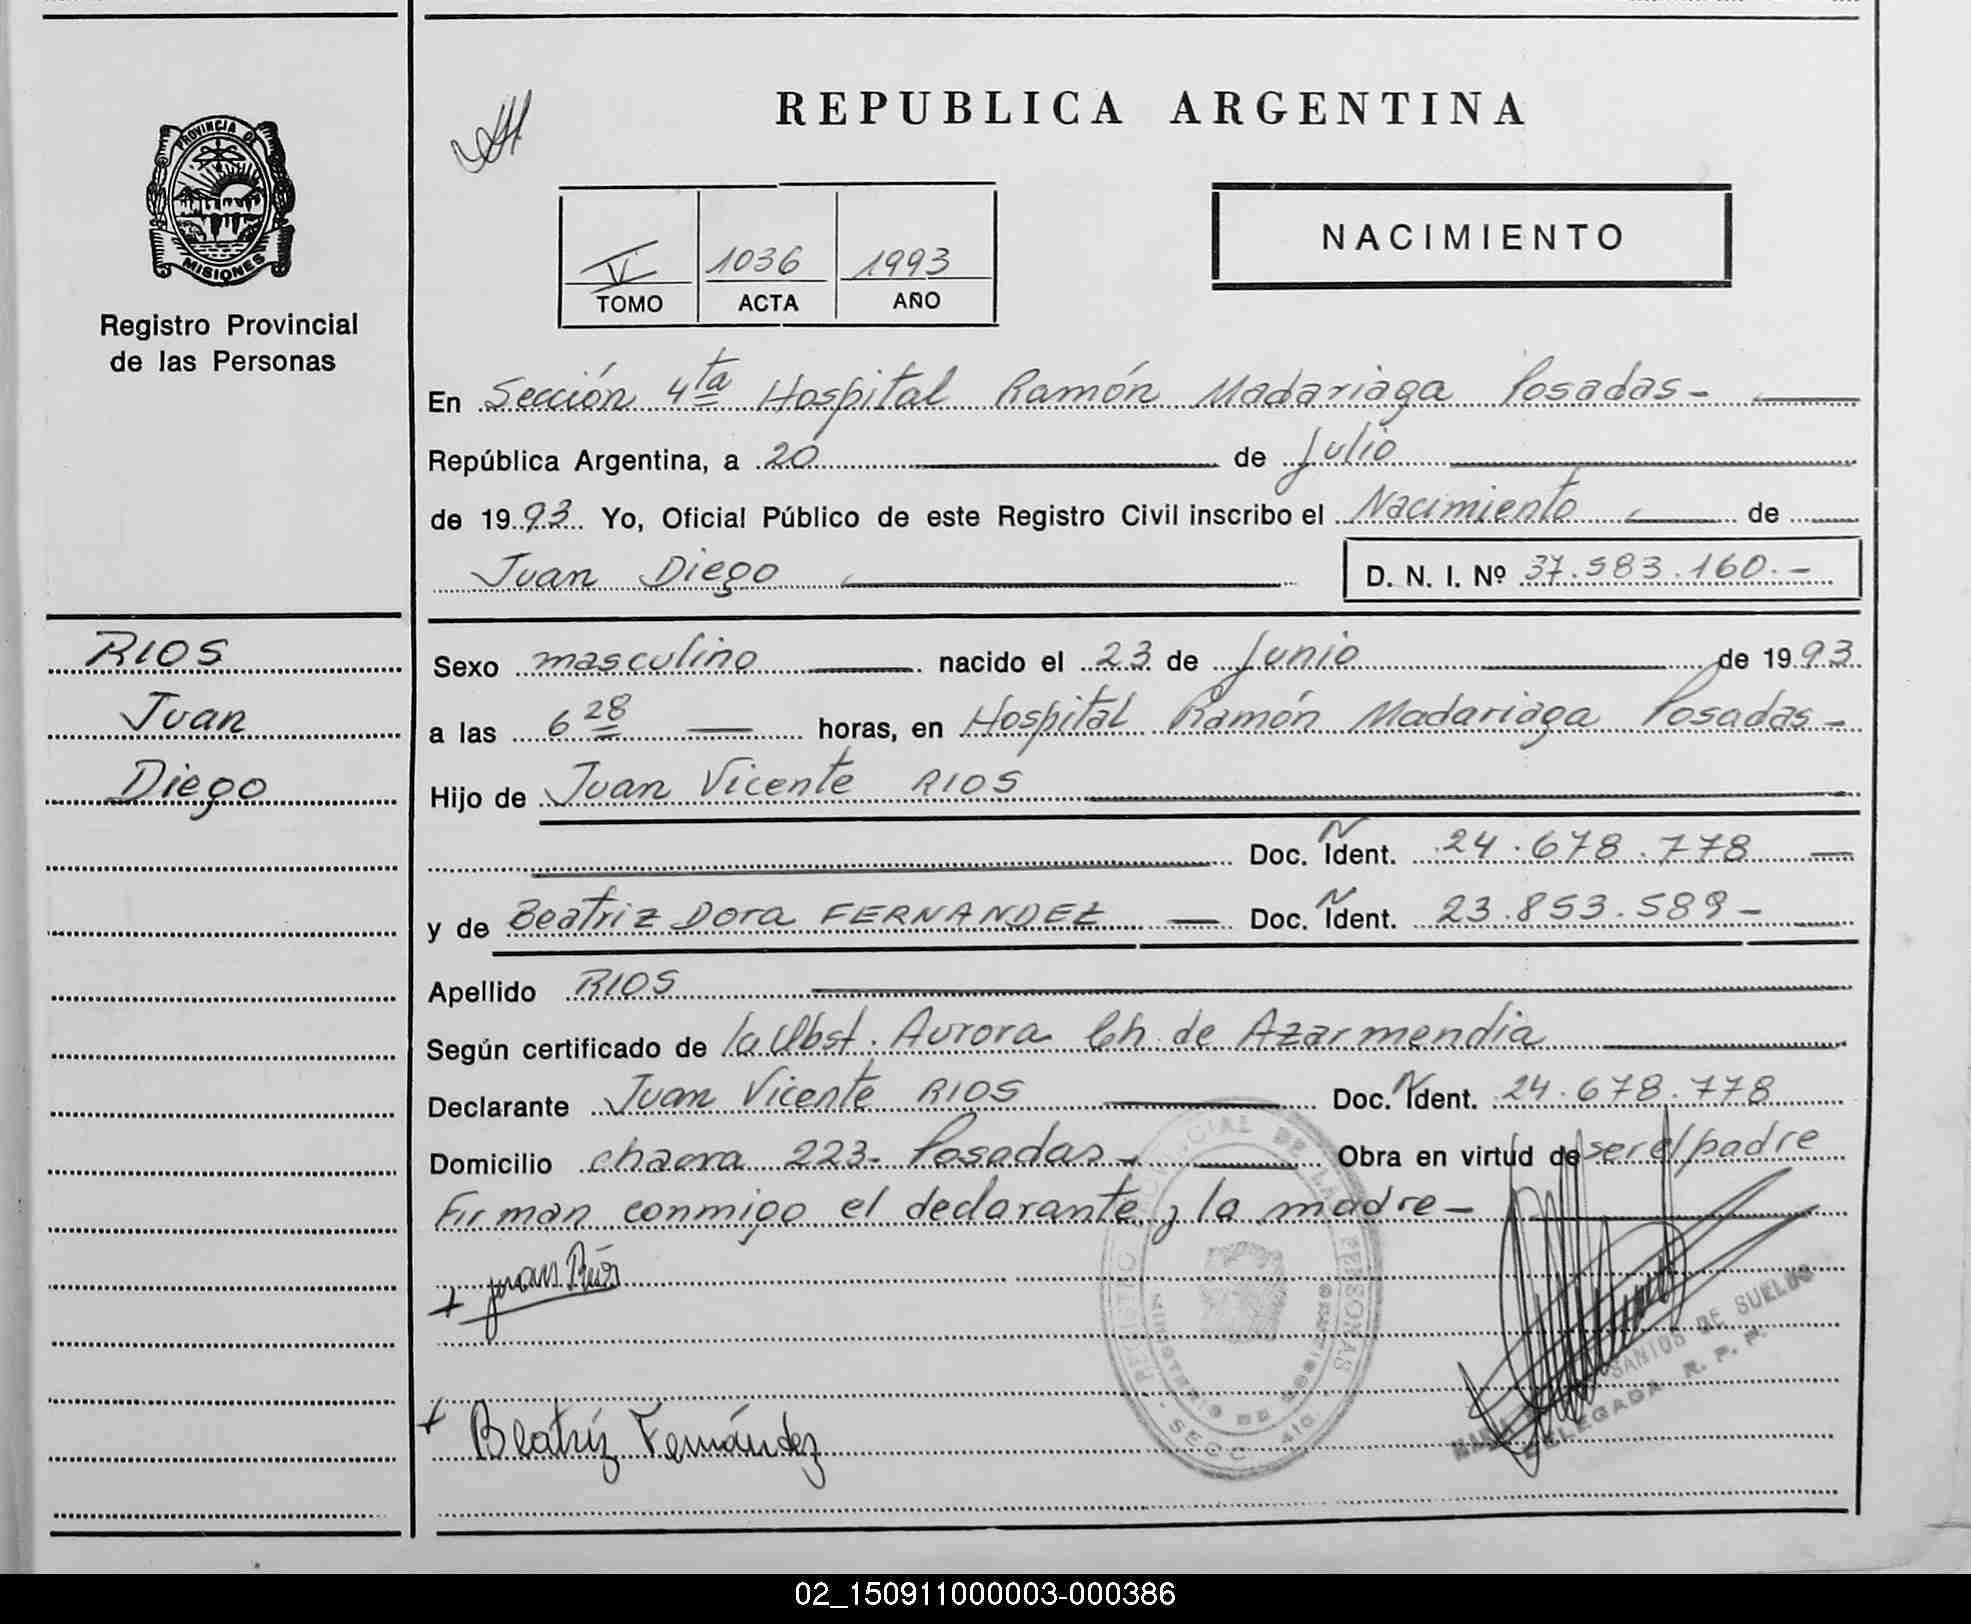 REPUBLICA ARGENTINA
PROVINCIA DE
MISIONES
Registro Provincial
de las Personas
V 1036 1993
TOMO ACTA AÑO
NACIMIENTO
En Sección 4ta Hospital Ramón Madariaga Posadas-
República Argentina, a 20 de Julio
de 1993. Yo, Oficial Público de este Registro Civil inscribo el Nacimiento de
Juan Diego D. N. I. Nº 37.583.160.-
RIOS
Juan
Diego
Sexo masculino nacido el 23 de Junio de 1993.
a las 6 28 horas, en Hospital Ramón Madariaga Posadas-
Hijo de Juan Vicente RIOS
Doc. N Ident. 24.678.778
y de Beatriz Dora FERNANDEZ Doc. N Ident. 23.853.589-
Apellido RIOS
Según certificado de la Obst. Aurora Ch. de Azarmendia
Declarante Juan Vicente RIOS Doc. N Ident. 24.678.778
Domicilio chacra 223- Posadas- Obra en virtud de ser el padre
Firman conmigo el declarante y la madre-
+ Juan Ríos
+ Beatríz Fernández
REGISTRO PROVINCIAL DE LAS PERSONAS
MINISTERIO DE GOBIERNO
- SECC. 4ta. -
SANTOS DE SUELOS
DELEGADA R. P. P.
02_150911000003-000386